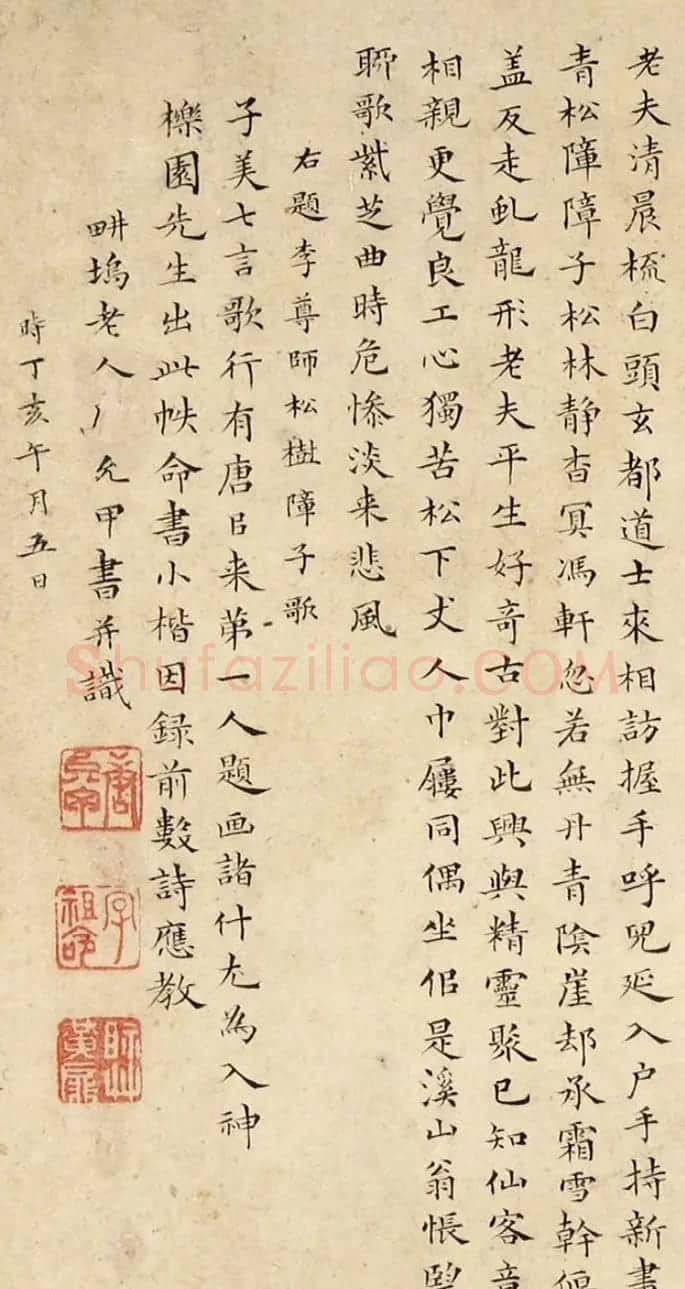 老夫清晨梳白頭玄都道士來相訪握手呼兒延入户手持新畫
青松障障子松林静杳冥馮軒忽若無丹青陰崖却承霜雪幹偃
盖反走虬龍形老夫平生好奇古對此興與精靈聚已知仙客意
相親更覺良工心獨苦松下丈人巾屨同偶坐佀是溪山翁悵望
聊歌紫芝曲時危慘淡来悲風
右題李尊師松樹障子歌
子美七言歌行有唐㠯来苐一人題画諸什尤為入神
櫟園先生出此帙命書小楷因録前數詩應教
畊塢老人丿允甲書并識
時丁亥午月五日
唐允甲
字祖命
Shufaziliao.COM